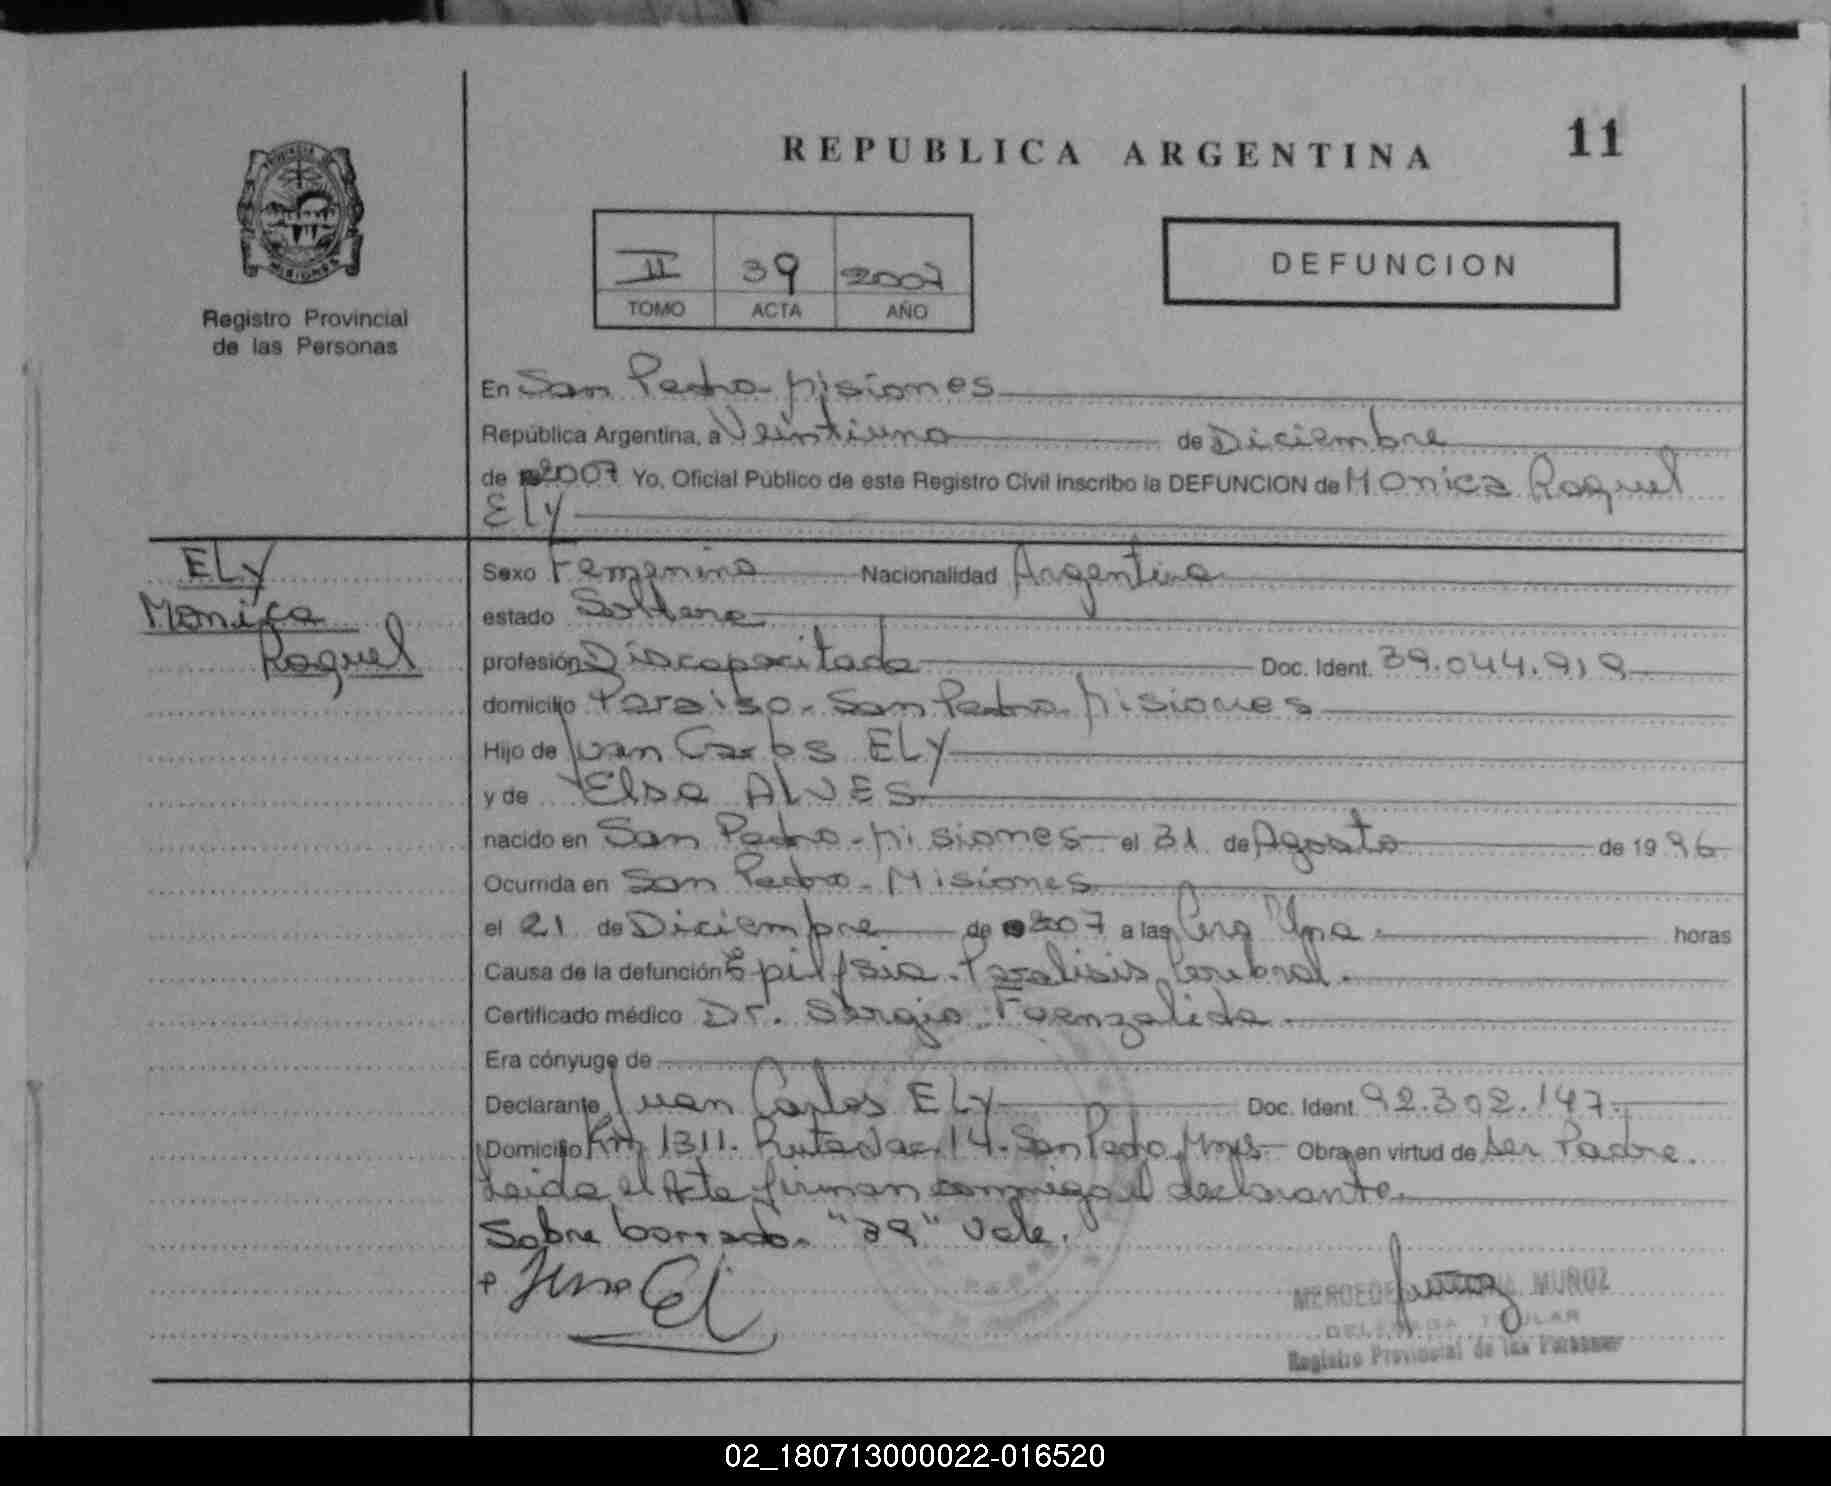 REPUBLICA ARGENTINA
11
PROVINCIA DE
MISIONES
Registro Provincial
de las Personas
II 39 2007
TOMO ACTA AÑO
DEFUNCION
En San Pedro - Misiones
República Argentina, a Veintiuno de Diciembre
de 2007 Yo, Oficial Público de este Registro Civil inscribo la DEFUNCION de Monica Raquel
ELY
ELY
Monica
Raquel
Sexo Femenino Nacionalidad Argentina
estado Soltera
profesión Discapacitada Doc. Ident. 39.044.919
domicilio Paraiso - San Pedro - Misiones
Hijo de Juan Carlos ELY
y de Elsa ALVES
nacido en San Pedro - Misiones el 31 de Agosto de 1996
Ocurrida en San Pedro - Misiones
el 21 de Diciembre de 2007 a las horas
Causa de la defunción Epilepsia - Paralisis Cerebral.
Certificado médico Dr. Sergio Fuenzalida.
Era cónyuge de
Declarante Juan Carlos ELY Doc. Ident. 92.302.147.
Domicilio Km 1311. Ruta Nac. 14. San Pedro, Mnes Obra en virtud de ser Padre.
Leida el Acta firman conmigo el declarante.
Sobre borrado. "39" Vale.
MUÑOZ
Registro Provincial de las Personas
02_180713000022-016520